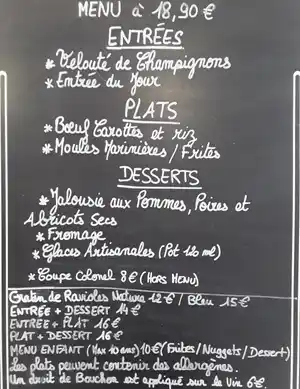 MENU à 18,90 €
ENTRÉES
* Velouté de Champignons
* Entrée du Jour
PLATS
* Bœuf Carottes et riz
* Moules Marinières / Frites
DESSERTS
* Jalousie aux Pommes, Poires et
Abricots Secs
* Fromage
* Glaces Artisanales (Pot 120 ml)
* Coupe Colonel 8 € (HORS MENU)
Gratin de Ravioles Nature 12 € / Bleu 15 €
ENTRÉE + DESSERT 14 €
ENTRÉE + PLAT 16 €
PLAT + DESSERT 16 €
MENU ENFANT (Max 10 ans) 10 € (Frites / Nuggets / Dessert)
Les plats peuvent contenir des allergènes.
Un droit de Bouchon est appliqué sur le Vin 6 €.